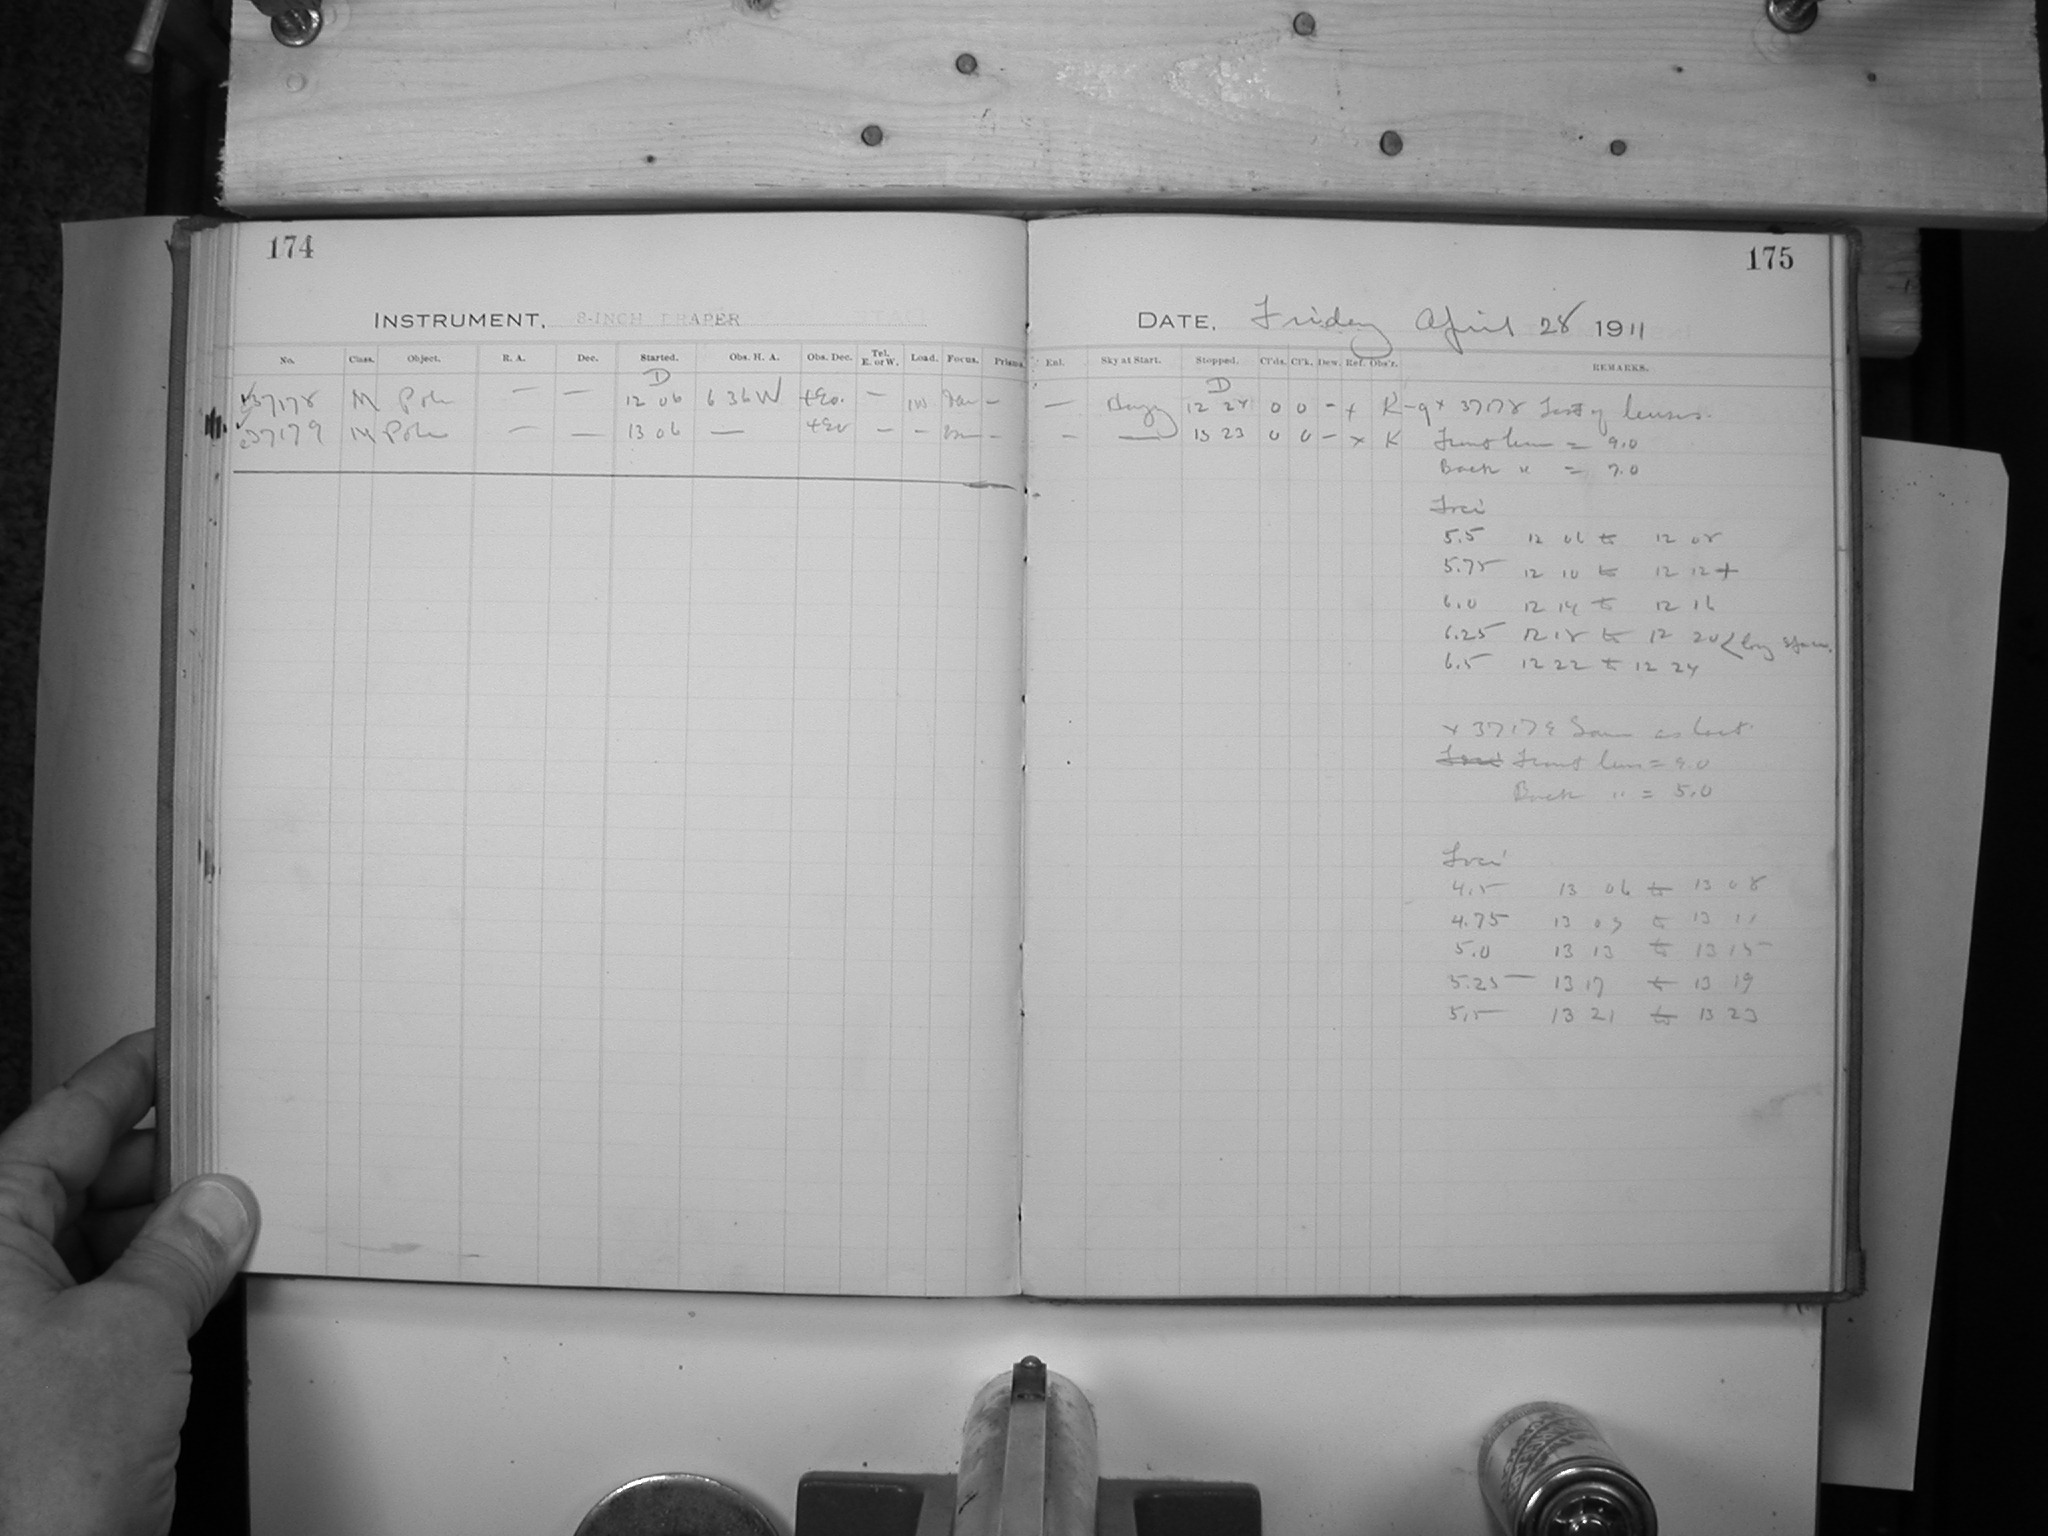 174
INSTRUMENT, 8-INCH DRAPER
No. Class. Object. R. A. Dec. Started. Obs. H. A. Obs. Dec. Tel. E. or W. Load. Focus. Prisms.
D
37178 M Pole — — 12 06 6 36 W +90. — 1W —
37179 M Pole — — 13 06 — +90 — — —
175
DATE, Friday April 28 1911
Enl. Sky at Start. Stopped. Cl'ds. Cl'k. Dew. Ref. Obs'r. REMARKS.
D
— Hazy 12 24 0 0 - + K-g x 37178 Test of lenses.
— — 13 23 0 0 — x K Front lens = 9.0
Back " = 7.0
Foci
5.5 12 06 to 12 08
5.75 12 10 to 12 12+
6.0 12 14 to 12 16
6.25 12 18 to 12 20 < long space.
6.5 12 22 to 12 24
x 37179 Same as last
Foci Front lens = 9.0
Back " = 5.0
Foci
4.5 13 06 to 13 08
4.75 13 09 to 13 11
5.0 13 13 to 13 15
5.25 13 17 to 13 19
5.5 13 21 to 13 23